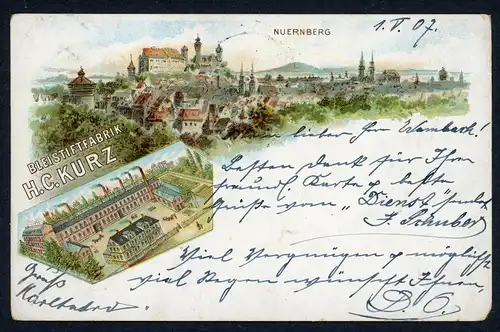 NUERNBERG.
1. V. 07.
BLEISTIFTFABRIK
H.C. KURZ
lieber Herr Wambach!
Besten Dank für Ihren
freundl. Karte & beste
Grüße vom "Dienst" sendet
F. Schuber
Viel Vergnügen & möglichst
viel Regen wünscht Ihnen,
Gruß